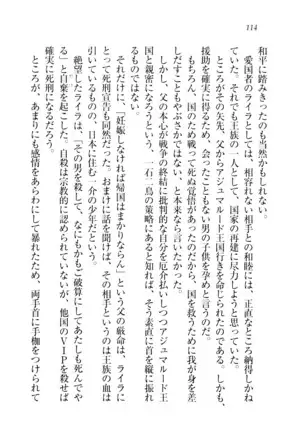 114
和平に踏みきったのも当然かもしれない。
愛国者のライラとしては、相容れない相手との和睦には、正直なところ納得しかね
ていた。それでも王族の一人として、国家の再建に尽力しようと思っていた。しかし、
ところがその矢先、父からアジュマルード王国行きを命じられたのだ。しかも、
援助を確実に得るため、会ったこともない男の子供を孕めと言うのだ。
もちろん、国のため戦って死ぬ覚悟があったのだから、国を救うために我が身を差
しだすこともやぶさかではない、と本来なら言いたかった。
しかし、父の本心が戦争継続を訴える批判的な自分を厄介払いしつつアジュマルード王
国と親密になろうという、一石二鳥の策略にあると知れば、そう素直に首を縦に振れ
るものではない。
それだけに、「妊娠しなければ帰国はまかりならん」という父の厳命は、ライラに
とって死刑宣告も同然だった。おまけに話を聞けば、その相手というのは王族の血は
引いているものの、日本に住む一介の少年だという。
絶望したライラは、「その男を殺して、なにもかもご破算にしてあたしも死んでや
る」と自棄を起こした。自殺は宗教的に認められないが、他国のVIPを殺せば
確実に死刑になるだろう。
ところが、あまりにも感情をあらわにして暴れたため、両手首に手枷をつけられて